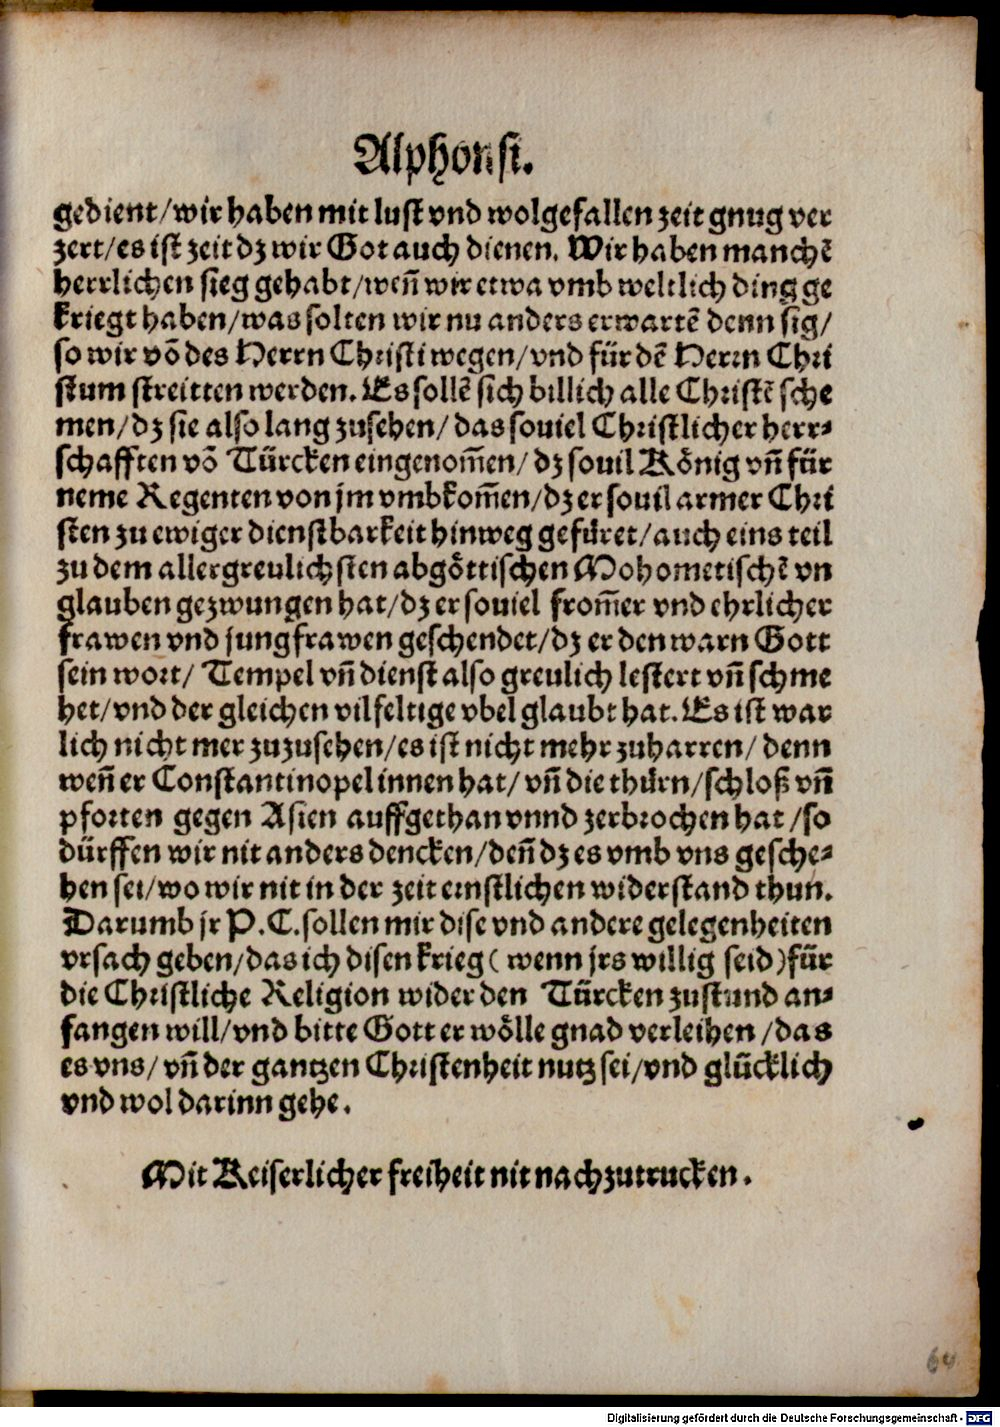 Alphonsi.
gedient/wir haben mit lust vnd wolgefallen zeit gnug ver
zert/es ist zeit dz wir Got auch dienen. Wir haben manchē
herrlichen sieg gehabt/weñ wir etwa vmb weltlich ding ge
kriegt haben/was solten wir nu anders erwartē denn sig/
so wir võ des Herrn Christi wegen/vnd für dē Herrn Chri
stum streitten werden. Es sollē sich billich alle Christē sche
men/dz sie also lang zusehen/das souiel Christlicher herr⸗
schafften võ Türcken eingenom̃en/dz souil König vñ für
neme Regenten von jm vmbkom̃en/dz er souil armer Chri
sten zu ewiger dienstbarkeit hinweg gefüret/auch eins teil
zu dem allergreulichsten abgöttischen Mohometischē vn
glauben gezwungen hat/dz er souiel from̃er vnd ehrlicher
frawen vnd jungfrawen geschendet/dz er den warn Gott
sein wort/ Tempel vñ dienst also greulich lestert vñ schme
het/vnd der gleichen vilfeltige vbel glaubt hat. Es ist war
lich nicht mer zuzusehen/es ist nicht mehr zuharren/denn
weñ er Constantinopel innen hat/vñ die thürn/schloß vñ
pforten gegen Asien auffgethan vnnd zerbrochen hat/so
dürffen wir nit anders dencken/deñ dz es vmb vns gesche⸗
hen sei/wo wir nit in der zeit ernstlichen widerstand thun.
Darumb jr P.C. sollen mir dise vnd andere gelegenheiten
vrsach geben/das ich disen krieg (wenn jrs willig seid) für
die Christliche Religion wider den Türcken zustund an⸗
fangen will/vnd bitte Gott er wölle gnad verleihen/das
es vns/vñ der gantzen Christenheit nutz sei/vnd glücklich
vnd wol darinn gehe.
Mit Keiserlicher freiheit nit nachzutrucken.
64
Digitalisierung gefördert durch die Deutsche Forschungsgemeinschaft - DFG